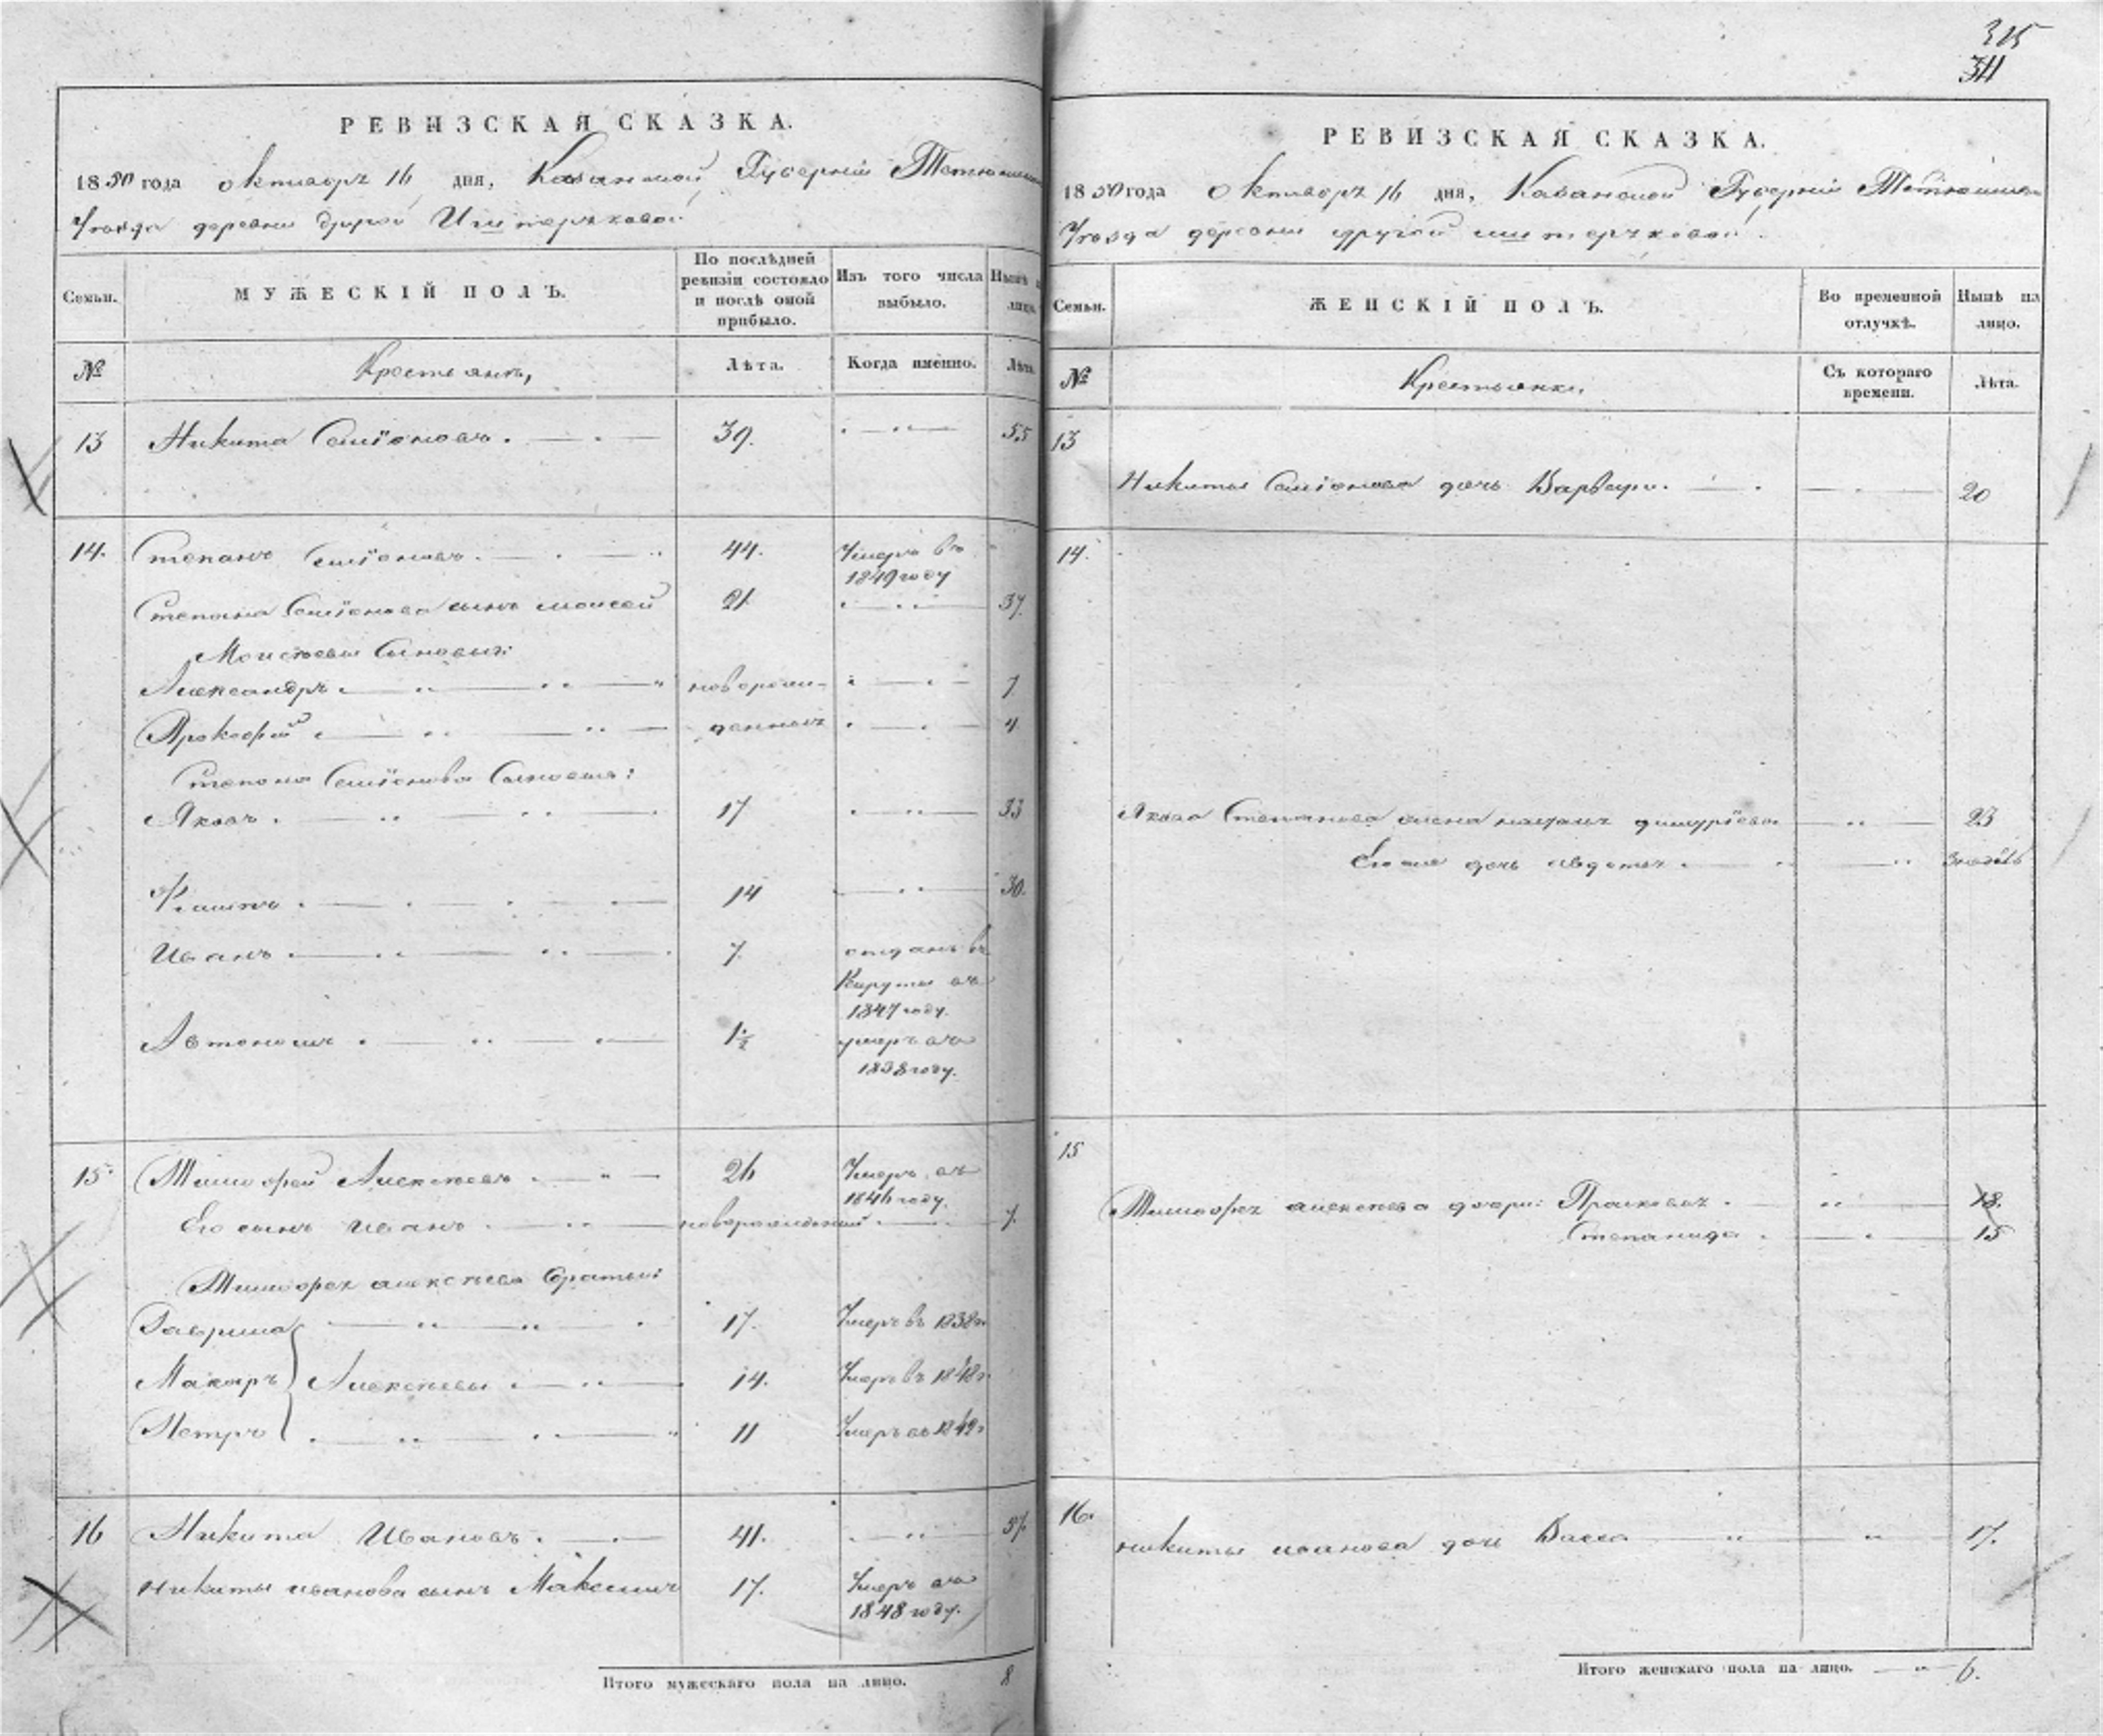 315
311
РЕВИЗСКАЯ СКАЗКА.
1850 года октября 16 дня, Казанской Губерніи Тетюшскаго
Уѣзда деревни другой Иштеряковой
Семьи.
МУЖЕСКІЙ ПОЛЪ.
По послѣдней ревизіи состояло и послѣ оной прибыло.
Изъ того числа выбыло.
Нынѣ на лицо.
№
Крестьянъ,
Лѣта.
Когда именно.
Лѣта.
13 Никита Семіоновъ. 39. 55
14. Степанъ Семіоновъ. 44. Умеръ въ
1849 году
Степана Семіонова сынъ Моисей 21 37.
Моисѣевы Сыновья:
Александръ новорож- 7
Прокофій денные 4
Степана Семіонова Сыновья:
Яковъ. 17 33
Филипъ. 14 30.
Иванъ. 7. отданъ въ
Рекруты въ
1847 году.
Автономъ. 1½ умеръ въ
1838 году.
15. Тимофей Алексѣевъ 26 Умеръ въ
1846 году.
Его сынъ Иванъ новорожденный 7.
Тимофея алексѣева братья:
Гаврила 17. Умеръ въ 1838 г.
Макаръ Алексѣевы 14. Умеръ въ 1848 г.
Петръ 11 Умеръ въ 1849 г.
16 Никита Ивановъ. 41. 57.
Никиты иванова сынъ Максимъ 17. Умеръ въ
1848 году.
Итого мужескаго пола на лицо. 8
РЕВИЗСКАЯ СКАЗКА.
1850 года октября 16 дня, Казанской Губерніи Тетюшскаго
Уѣзда деревни другой иштеряковой.
Семьи.
ЖЕНСКІЙ ПОЛЪ.
Во временной отлучкѣ.
Нынѣ на лицо.
№
Крестьянки.
Съ котораго времени.
Лѣта.
13
Никиты Семіонова дочь Варвара. 20
14.
Якова Степанова жена 23
Его же дочь 3 недѣль
15
Тимофея алексѣева дочери: Прасковья. 18.
Степанида. 15
16.
никиты иванова дочь Васса 17.
Итого женскаго пола на лицо. 6.